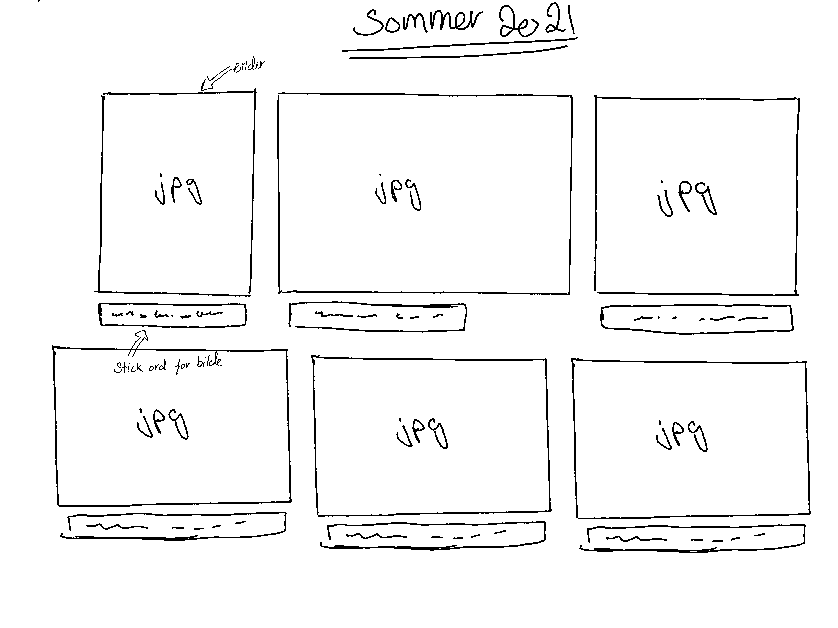 Sommer 2021
Bilder
jpg
jpg
jpg
Stick ord for bilde
jpg
jpg
jpg